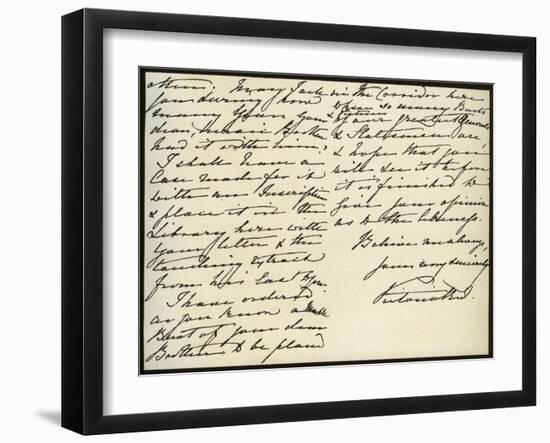 other! May I ask
you during how
many years your
dear, heroic Brother
had it with him?
I shall have a
Case made for it
with an Inscription
& place it in the
Library here with
your letter & the
touching extract
from his last to you.
I have ordered
as you know a Marble
Bust of your dear
Brother to be placed
in the Corridor here
where so many Busts
& Pictures
of our greatest Generals
& Statesmen are,
& hope that you
will see it before
it is finished to
give your opinion
as to the likeness.
Believe me always,
yours very sincerely
Victoria R.I.